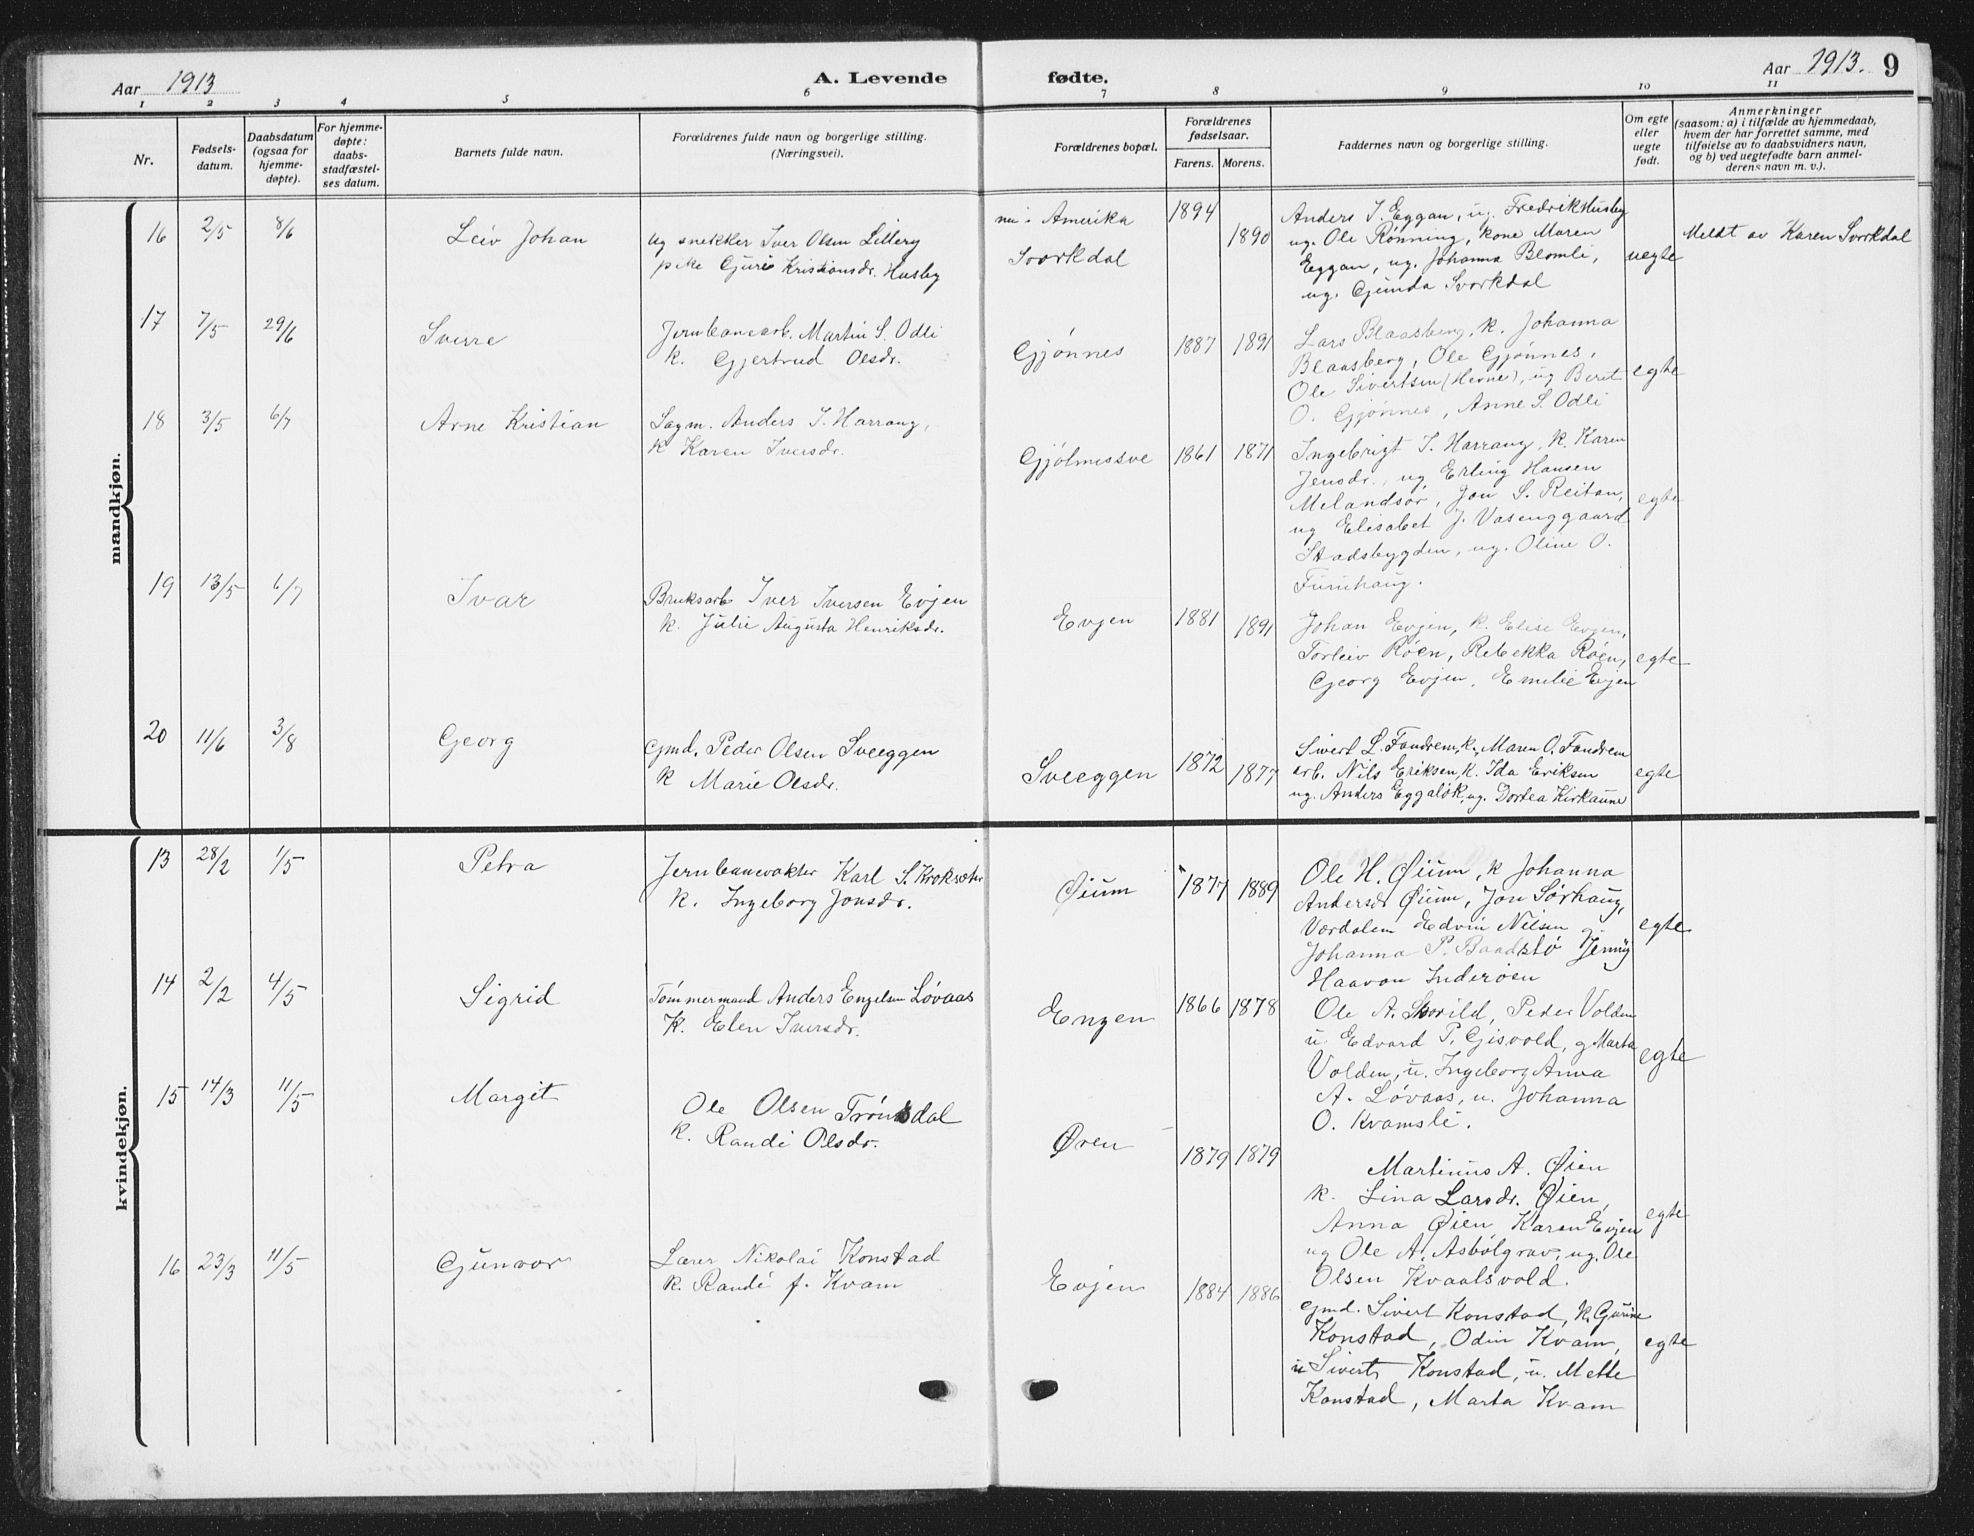 Aar 1913
A. Levende fødte.
Aar 1913. 9
1 2 3 4 5 6 7 8 9 10 11
Nr.
Fødsels-
datum.
Daabsdatum
(ogsaa for
hjemme-
døpte).
For hjemme-
døpte:
daabs-
stadfæstel-
ses datum.
Barnets fulde navn.
Forældrenes fulde navn og borgerlige stilling.
(Næringsvei).
Forældrenes bopæl.
Forældrenes
fødselsaar.
Farens. Morens.
Faddernes navn og borgerlige stilling.
Om egte
eller
uegte
født.
Anmerkninger
(saasom: a) i tilfælde av hjemmedaab,
hvem der har forrettet samme, med
tilføielse av to daabsvidners navn,
og b) ved uegtefødte barn anmel-
derens navn m. v.).
mandkjøn.
16 2/5 8/6 Leiv Johan
ug snekker Iver Olsen Lillery
pike Guri Kristiansdr. Husby
nu i Amerika
Svorkdal
1894 1890
Anders I. Eggan, ug. Fredrik Husby
ug. Ole Rønning, kone Maren
Eggan, ug. Johanna Blomli,
ug. Gunda Svorkdal
uegte
Meldt av Karen Svorkdal
17 7/5 29/6 Sverre
Jernbanearb. Martin S. Odli
k. Gjertrud Olsdr.
Gjønnes
1887 1891
Lars Blaasberg, k. Johanna
Blaasberg, Ole Gjønnes,
Ole Sivertsen (Hevne), ug Beret
O. Gjønnes, Anne S. Odli
egte
18 3/5 6/7 Arne Kristian
Sagm. Anders I. Harrang,
k Karen Iversdr.
Gjølmesøve
1861 1871
Ingebrigt I. Harrang, k. Karen
Jensdr., ug Erling Hansen
Melandsør, Jon S. Reitan,
ug Elisabet J. Vasenggaard
Stadsbygden, ug. Oline O.
Furuhaug.
egte
19 13/5 6/7 Ivar
Bruksarb Iver Iversen Evjen
k. Julie Augusta Henriksdr.
Evjen
1881 1891
Johan Evjen, k. Elise Evjen,
Torleiv Røen, Rebekka Røen,
Georg Evjen, Emilie Evjen
egte
20 11/6 3/8 Georg
Gmd. Peder Olsen Sveeggen
k Marie Olsdr.
Sveeggen
1872 1877
Sivert L. Fandrem, k. Maren O. Fandrem
arb. Nils Eriksen, k. Ida Eriksen
ug. Anders Eggaløk, ug. Dortea Kirkaune
egte
kvindekjøn.
13 28/2 1/5 Petra
Jernbanevakter Karl S. Kroksæter
k. Ingeborg Jonsdr.
Øium
1877 1889
Ole H. Øium, k Johanna
Andersdr Øium, Jon Sørhaug,
Værdalen Edvin Nilsen g.
Johanna P. Baadstø Jenny
Haavan Inderøen
egte
14 2/2 4/5 Sigrid
Tømmermand Anders Engelsen Løvaas
K. Elen Iversdr.
Engen
1866 1878
Ole A. Skorild, Peder Volden
u. Edvard P. Gisvold, g Marta
Volden, u. Ingeborg Anna
A. Løvaas, u. Johanna
O. Kvamsli.
egte
15 14/3 11/5 Margit
Ole Olsen Trønsdal
k. Randi Olsdr.
Øren
1879 1879
Martinus A. Øien
k. Lina Larsdr. Øien,
Anna Øien Karen Evjen
ug Ole A. Asbølgrav, ug. Ole
Olsen Kvaalsvold.
egte
16 23/3 11/5 Gunvor
Lærer Nikolai Konstad
k. Randi f. Kvam
Evjen
1884 1886
Gmd. Sivert Konstad, k. Gurine
Konstad, Odin Kvam,
u Sivert Konstad, u. Mette
Konstad, Marta Kvam
egte